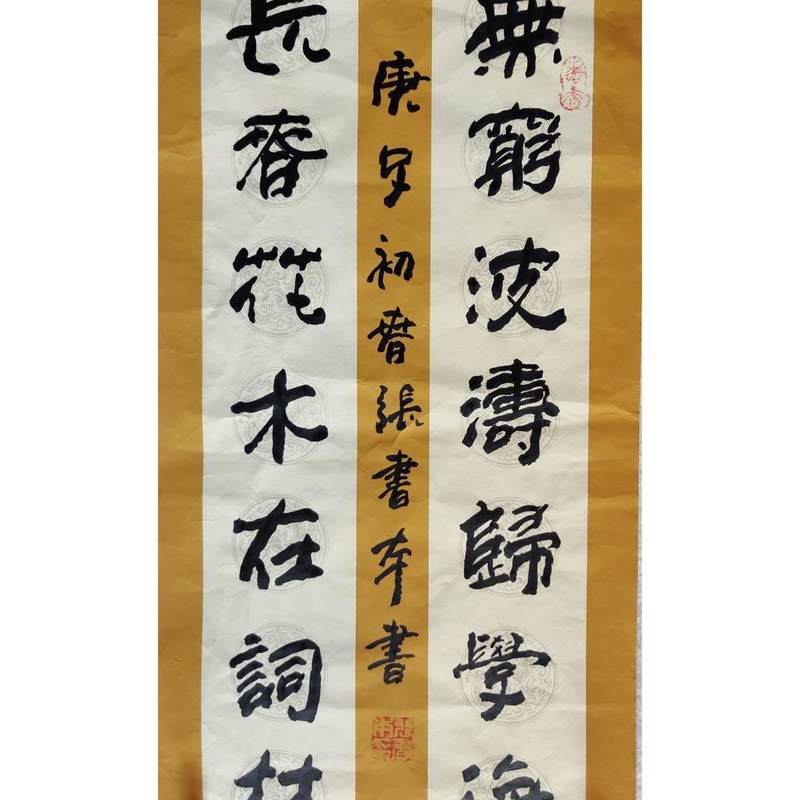 無窮波濤歸學海
庚子初春張書奎書
長春花木在詞林